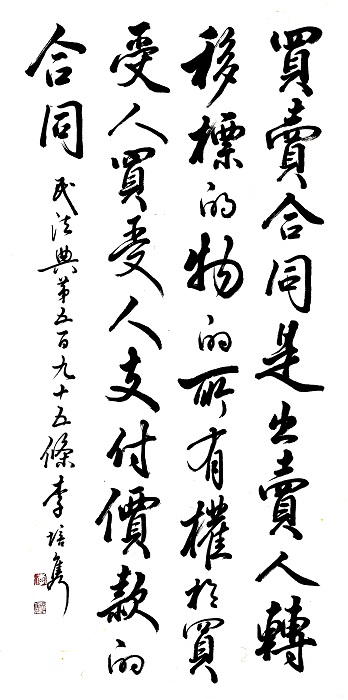 買賣合同是出賣人轉
移標的物的所有權於買
受人買受人支付價款的
合同
民法典第五百九十五條李培隽